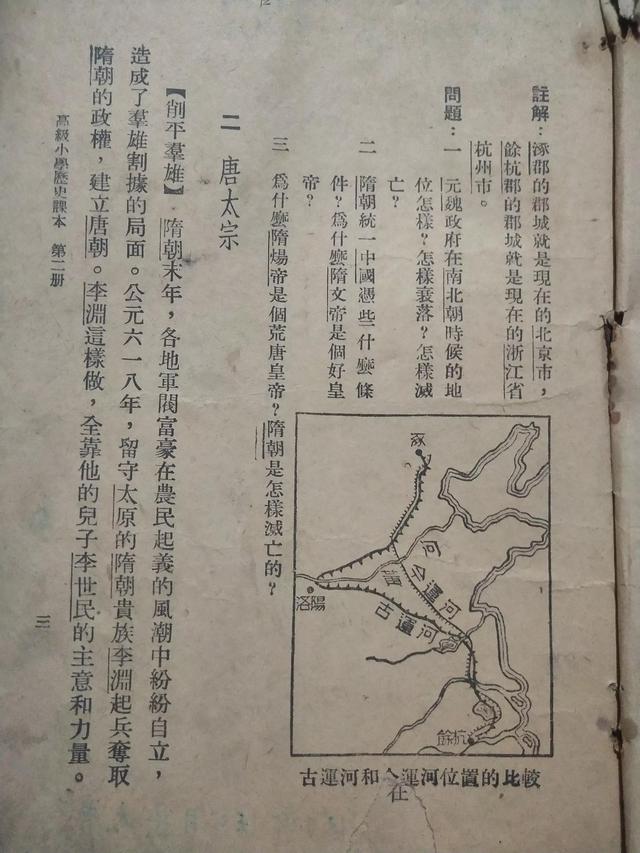 註解：涿郡的郡城就是現在的北京市，
餘杭郡的郡城就是現在的浙江省
杭州市。
問題：一　元魏政府在南北朝時候的地
位怎樣？怎樣衰落？怎樣滅
亡？
二　隋朝統一中國憑些什麼條
件？爲什麼隋文帝是個好皇
帝？
三　爲什麼隋煬帝是個荒唐皇帝？隋朝是怎樣滅亡的？
涿
黃
河
今運河
洛陽
古運河
餘杭
古運河和今運河位置的比較
在
二　唐太宗
【削平羣雄】　隋朝末年，各地軍閥富豪在農民起義的風潮中紛紛自立，
造成了羣雄割據的局面。公元六一八年，留守太原的隋朝貴族李淵起兵奪取
隋朝的政權，建立唐朝。李淵這樣做，全靠他的兒子李世民的主意和力量。
高級小學歷史課本　第二册
三